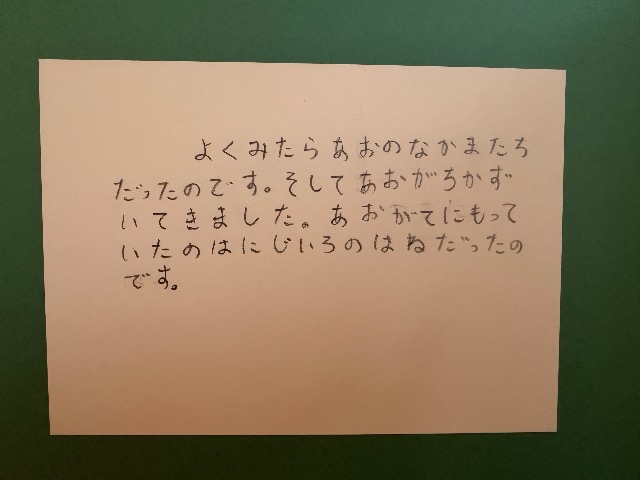 よくみたらあおのなかまたち
だったのです。そしてあおがちかず
いてきました。あおがてにもって
いたのはにじいろのはねだったの
です。